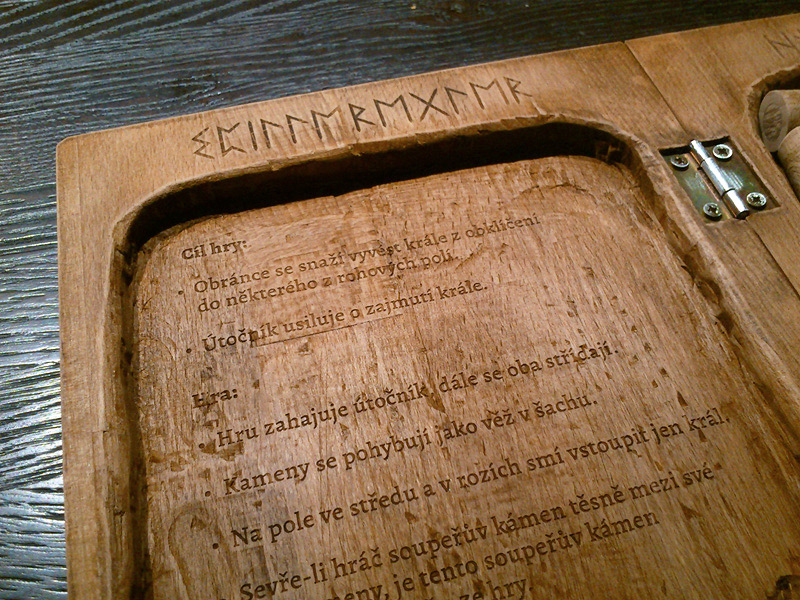 ᛊᛈᛁᛚᛚᛖᚱᛖᚷᛚᛖᚱ
Cíl hry:
• Obránce se snaží vyvést krále z obklíčení
do některého z rohových polí.
• Útočník usiluje o zajmutí krále.
Hra:
• Hru zahajuje útočník, dále se oba střídají.
• Kameny se pohybují jako věž v šachu.
• Na pole ve středu a v rozích smí vstoupit jen král.
• Sevře-li hráč soupeřův kámen těsně mezi své
je tento soupeřův kámen
ze hry.